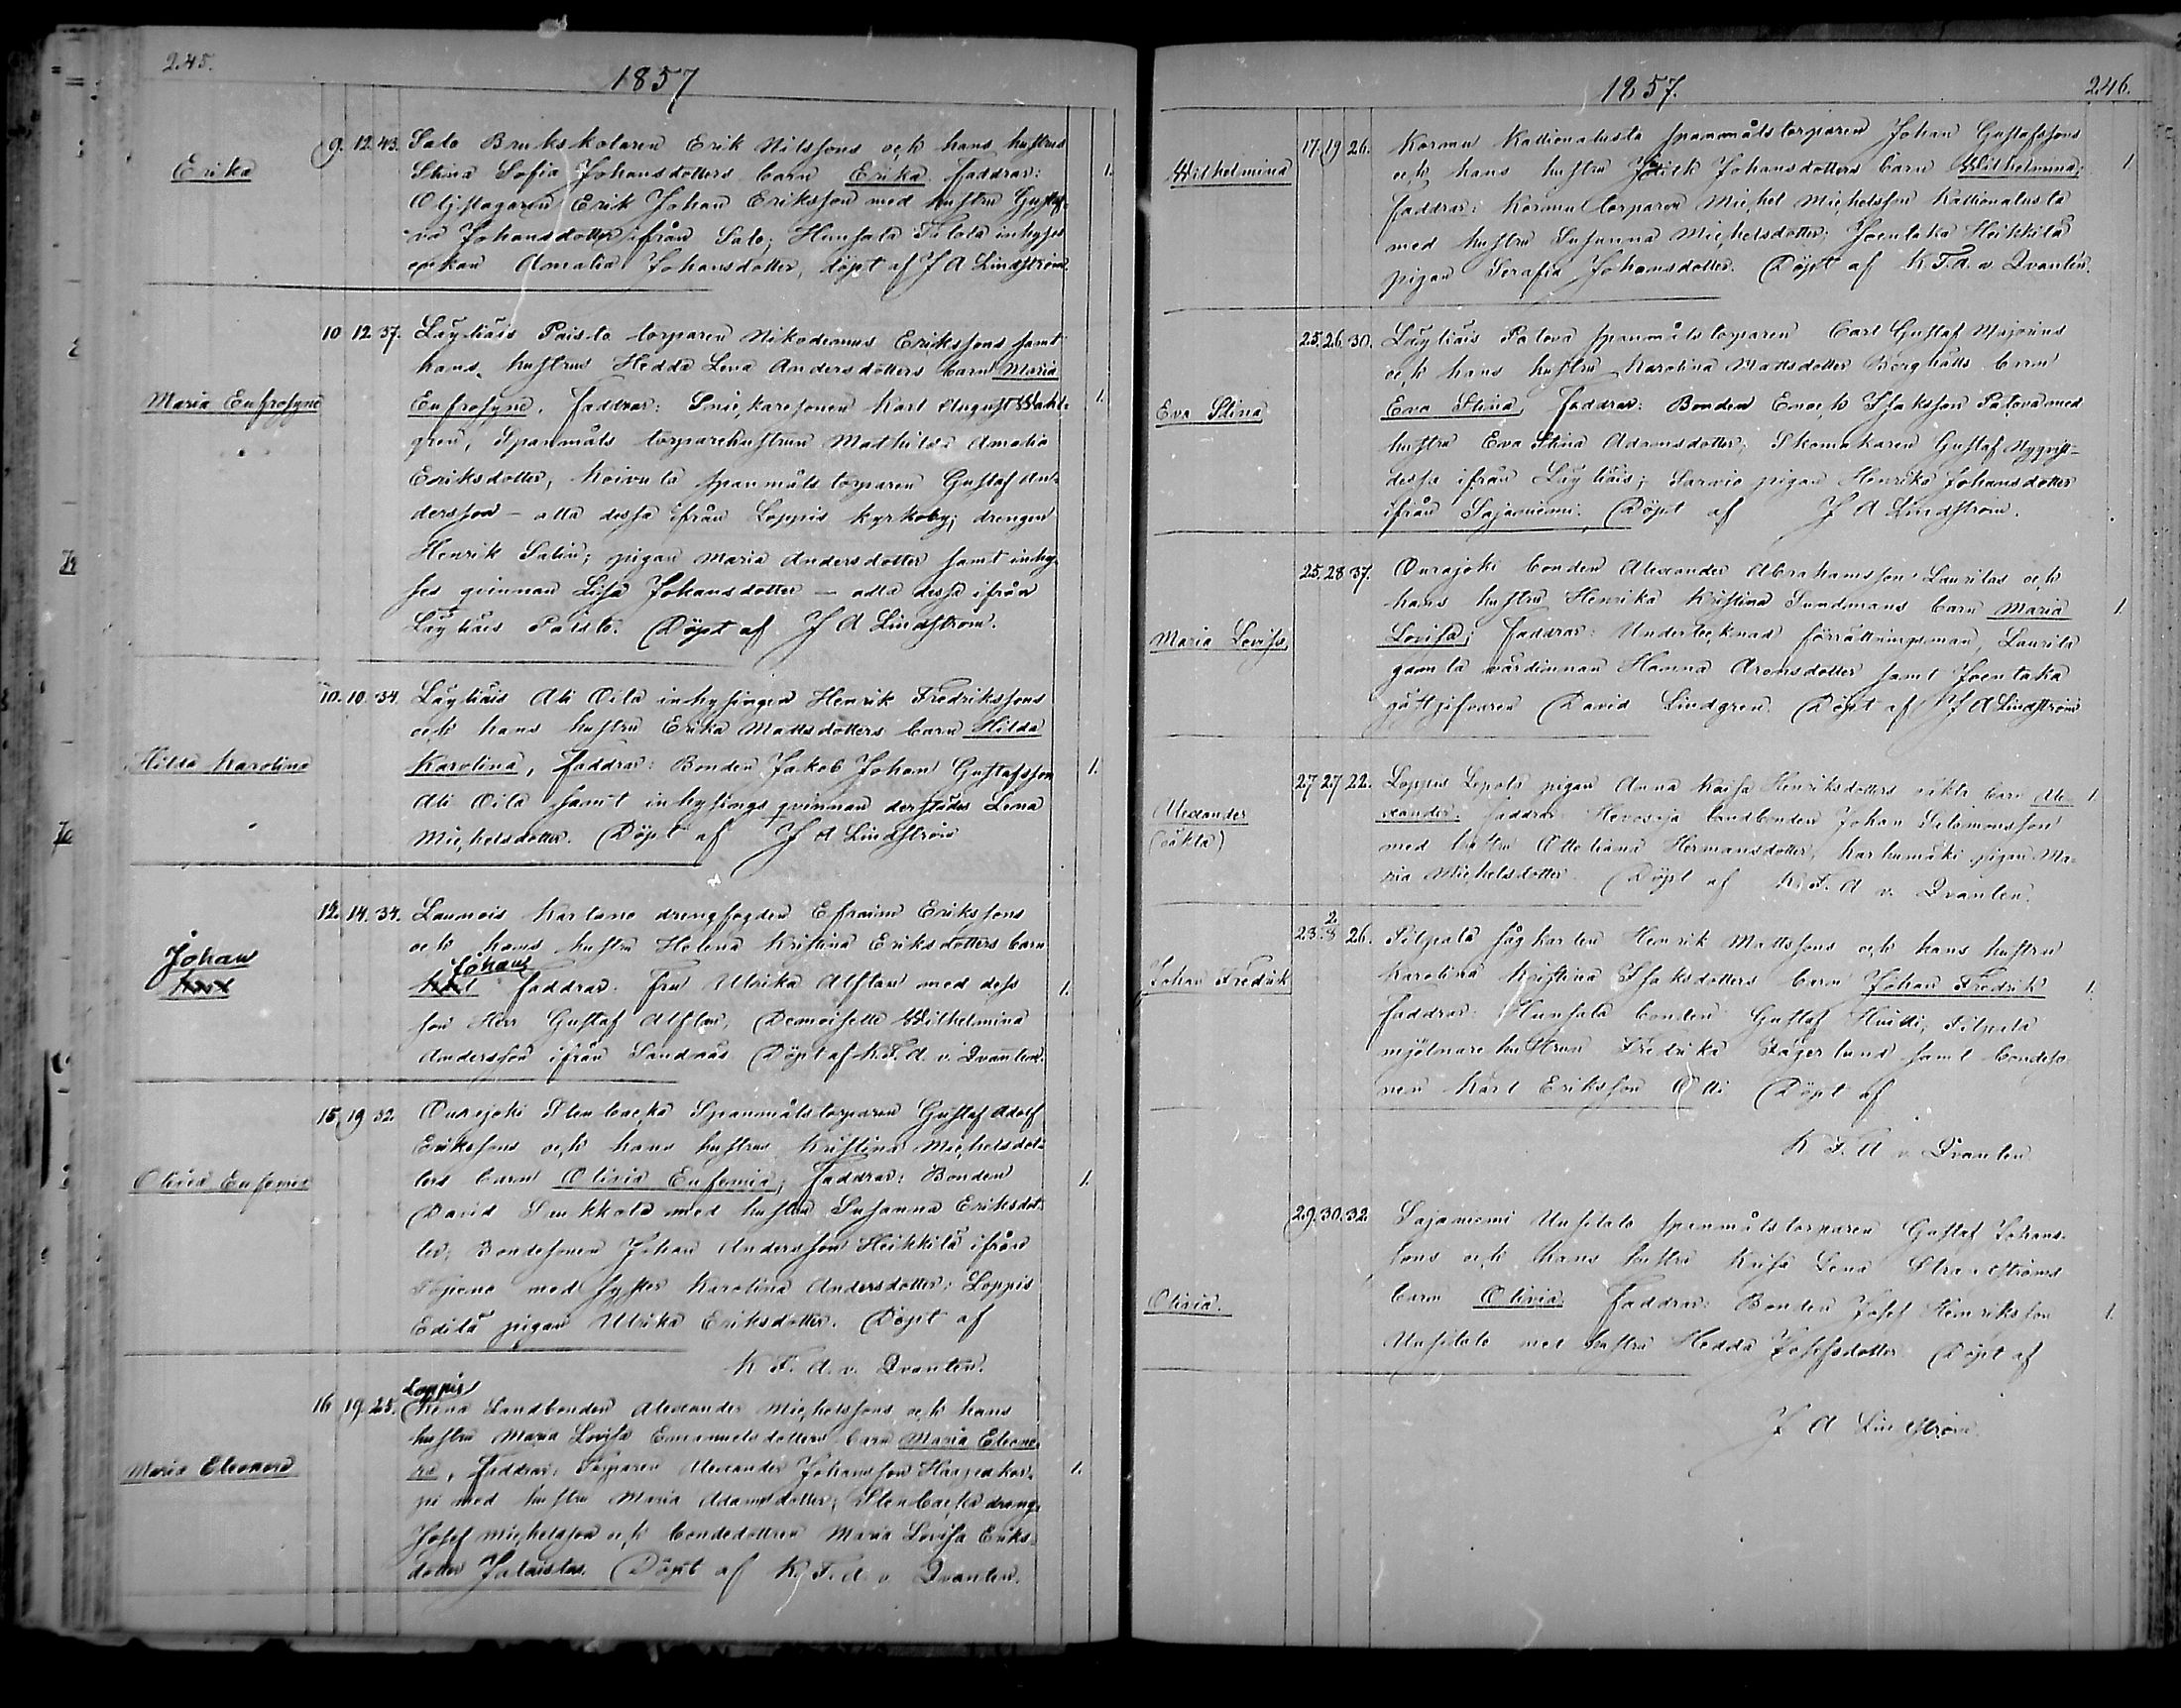 245.
1857
Erika
9. 12. 43. Salo Brukskolaren Erik Nilssons och hans hustrus
Stina Sofia Johansdotters barn Erika. Faddrar: 1.
Oljslagaren Erik Johan Eriksson med hustru Gustaf-
va Johansdotter ifrån Salo; Hunsala Talola inhyses
enkan Amalia Johansdotter, döpt af J A Lindström.
10 12 37. Läyliäis Paisto torparen Nikodemus Erikssons samt
hans hustrus Hedda Lena Andersdotters barn Maria
Maria Eufrosyne
Eufrosyne. Faddrar: Snickaresonen Karl August Wahl- 1.
gren, Spanmåls torparehustrun Mathilda Amalia
Eriksdotter, Koivula spanmåls torparen Gustaf An-
dersson – alla dessa ifrån Loppis kyrkoby; drengen
Henrik Salin; pigan Maria Andersdotter samt inhy-
ses qvinnan Lisa Johansdotter – alla dessa ifrån
Läyliäis Paisto. Döpt af J A Lindström.
10. 10. 34. Läyliäis Ali Oila inhysingen Henrik Fredrikssons
och hans hustru Erika Mattsdotters barn Hilda
Hilda Karolina
Karolina, Faddrar: Bonden Jakob Johan Gustafsson 1.
Ali Oila samt inhysings qvinnan derstädes Lena
Michelsdotter. Döpt af J A Lindström
12. 14. 34. Launois Kartano drengfogden Efraim Erikssons
och hans hustru Helena Kristina Eriksdotters barn
Johan
Johan
Karl
Karl Faddrar. Fru Ulrika Alftan med dess 1.
son Herr Gustaf Alftan, Demoiselle Wilhelmina
Andersson ifrån Sandnäs Döpt af K. F. A. v. Qvanten.
15. 19 32. Ourajoki Stenbacka Spanmålstorparen Gustaf Adolf
Erikssons och hans hustrus Kristina Michelsdot-
Olivia Eufemia
ters barn Olivia Eufemia; Faddrar: Bonden 1.
David Sukkola med hustru Susanna Eriksdot-
ter, Bondesonen Johan Andersson Heikkilä ifrån
Topeno med syster Karolina Andersdotter; Loppis
Edilä pigan Ulrika Eriksdotter. Döpt af
K F. A. v. Qvanten.
Loppis
16 19. 25. Landbonden Alexander Michelssons och hans
hustru Maria Lovisa Emanuelsdotters barn Maria Eleono-
Maria Eleonora
ra, Faddrar: Torparen Alexander Johansson Haapakor- 1.
pi med hustru Maria Adamsdotter; Stenbacka dreng.
Josef Michelsson och bondedottren Maria Lovisa Eriks-
dotter Jalaistus. Döpt af K. F. A. v. Qvanten.
1857.
246.
17. 19 26. Kormu Kallionalusta spanmålstorparen Johan Gustafssons
Wilhelmina
och hans hustru Judith Johansdotters barn Wilhelmina; 1.
Faddrar: Kormu torparen Michel Michelsson Kallionalusta
med hustru Susanna Michelsdotter; Joentaka Heikkilä
pigan Serafia Johansdotter. Döpt af K. F. A. v. Qvanten.
25. 26. 30. Läyliäis Patova spanmåls torparen Carl Gustaf Majorins
och hans hustru Karolina Mattsdotter Borghälls barn
Eva Stina
Eva Stina, Faddrar: Bonden Enoch Isaksson Patova med
hustru Eva Stina Adamsdotter; Skomakaren Gustaf Nyqvist–
dessa ifrån Läyliäis; Sarvio pigan Henrika Johansdotter
ifrån Sajaniemi. Döpt af J A Lindström.
25. 28. 37. Ourajoki bonden Alexander Abrahamsson Laurilas och
hans hustru Henrika Kristina Sundmans barn Maria 1.
Maria Lovisa
Lovisa; Faddrar: Undertecknad förrättningsman, Laurila
gamla värdinnan Hanna Aronsdotter samt Joentaka
gästgifvaren David Lindgren. Döpt af J A Lindström
27 27 22. Loppis Lepola pigan Anna Kaisa Henriksdotters oäkta barn Ale- 1.
Alexander
(oäkta)
xander. Faddrar: Hevosoja landbonden Johan Salomonsson
med hustru Ottiliana Hermansdotter, Karhumäki pigan Ma-
ria Michelsdotter. Döpt af K. F. A v. Qvanten.
2.
23. 3 26. Pilpala sågkarlen Henrik Mattssons och hans hustru
Johan Fredrik
Karolina Kristina Isaksdotters barn Johan Fredrik 1.
Faddrar: Hunsala bonden Gustaf Huitti, Pilpala
mjölnare hustrun Fredrika Fagerlund samt bondeso-
nen Karl Eriksson Döpt af
K F. A v. Qvanten
29. 30. 32. Sajaniemi Unsitalo spanmålstorparen Gustaf Johans-
sons och hans hustru Kaisa Lena Strandströms
Olivia.
barn Olivia. Faddrar: Bonden Josef Henriksson 1.
Unsitalo med hustru Hedda Josefsdotter. Döpt af
J A Lindström.